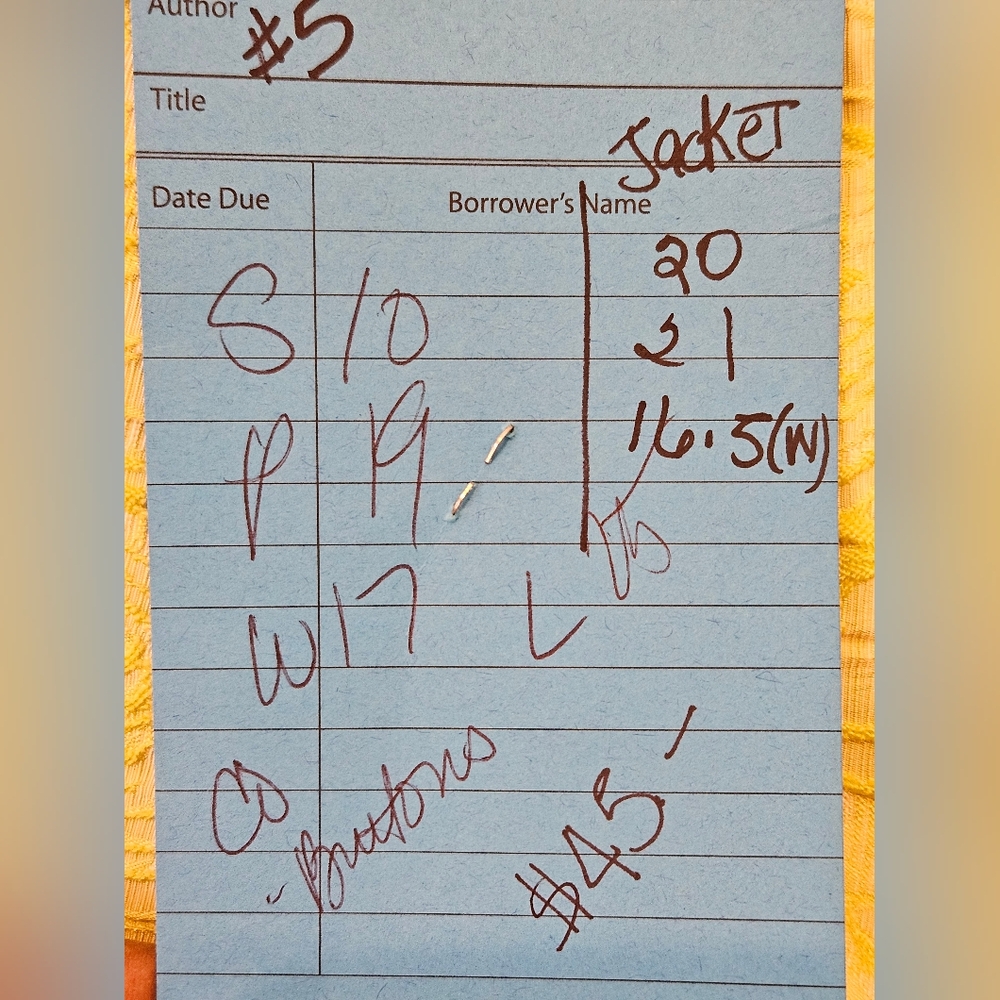 Author #5
Title
Jacket
Date Due Borrower's Name
20
S 10
21
P 19
16.5(W)
W 17 L
CO
-Buttons
$45